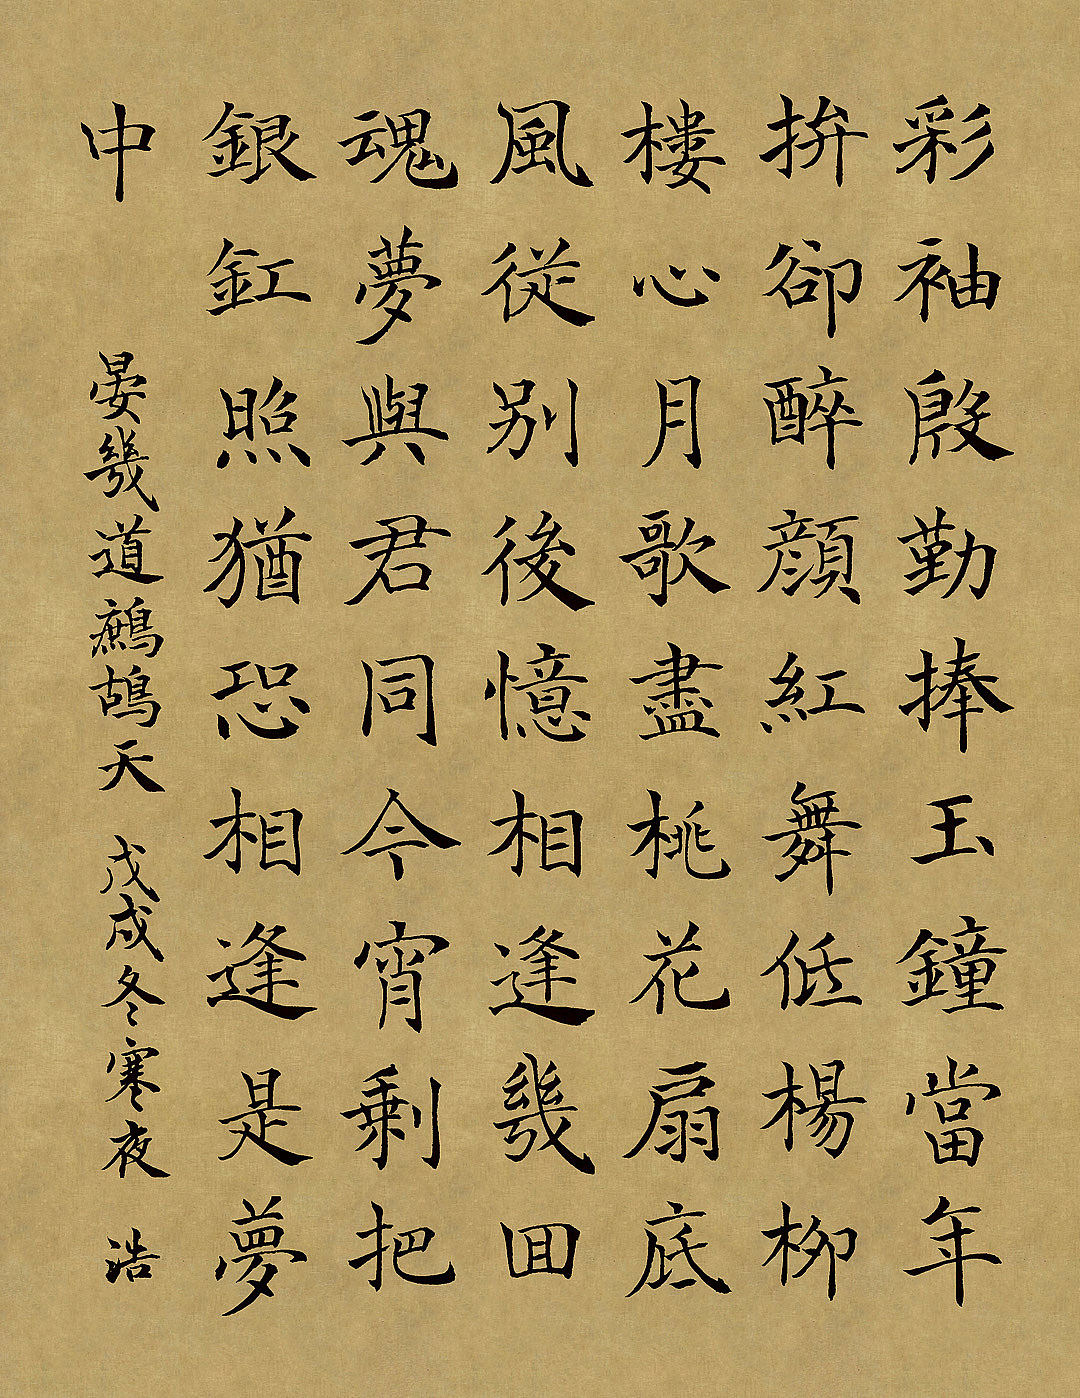 彩袖殷勤捧玉鐘當年
拚卻醉顔紅舞低楊柳
樓心月歌盡桃花扇底
風從別後憶相逢幾回
魂夢與君同今宵剩把
銀釭照猶恐相逢是夢
中
晏幾道鷓鴣天 戊戌冬寒夜 浩